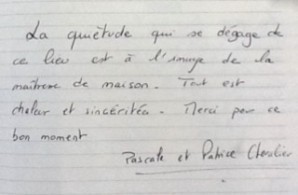 La quiètude qui se dégage de
ce lieu est à l'image de la
maitresse de maison. Tout est
chaleur et sincéritée. Merci pour ce
bon moment
Pascale et Patrice Chevalier